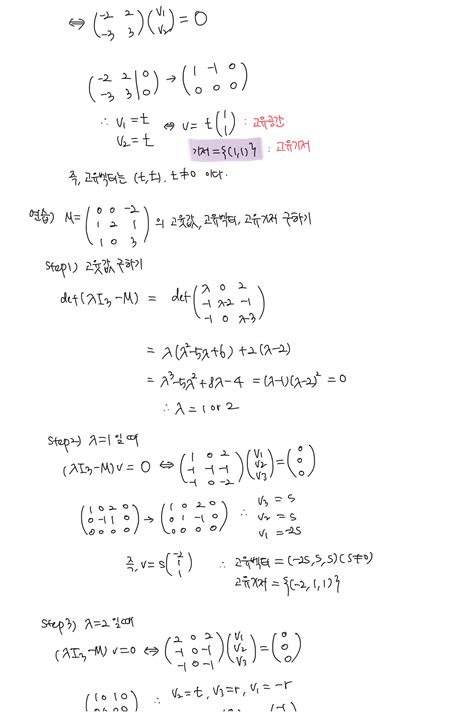 ⇔ (-2 2; -3 3)(v₁; v₂) = 0
(-2 2 | 0; -3 3 | 0) → (1 -1 0; 0 0 0)
∴ v₁ = t ⇔ v = t(1; 1) : 고유공간
v₂ = t
기저 = {(1,1)} : 고유기저
즉, 고유벡터는 (t,t). t≠0 이다.
연습) M = (0 0 -2; 1 2 1; 1 0 3) 의 고윳값, 고유벡터, 고유기저 구하기
Step1) 고윳값 구하기
det(λI₃-M) = det(λ 0 2; -1 λ-2 -1; -1 0 λ-3)
= λ(λ²-5λ+6) + 2(λ-2)
= λ³-5λ²+8λ-4 = (λ-1)(λ-2)² = 0
∴ λ = 1 or 2
Step2) λ=1 일 때
(λI₃-M)v = 0 ⇔ (1 0 2; -1 -1 -1; -1 0 -2)(v₁; v₂; v₃) = (0; 0; 0)
(1 0 2 0; 0 -1 1 0; 0 0 0 0) → (1 0 2 0; 0 1 -1 0; 0 0 0 0) ∴ v₃ = s
v₂ = s
v₁ = -2s
즉, v = s(-2; 1; 1) ∴ 고유벡터 = (-2s, s, s) (s≠0)
고유기저 = {(-2, 1, 1)}
Step3) λ=2 일 때
(λI₃-M) v=0 ⇔ (2 0 2; -1 0 -1; -1 0 -1)(v₁; v₂; v₃) = (0; 0; 0)
(1 0 1 0 ∴ v₂ = t, v₃ = r, v₁ = -r